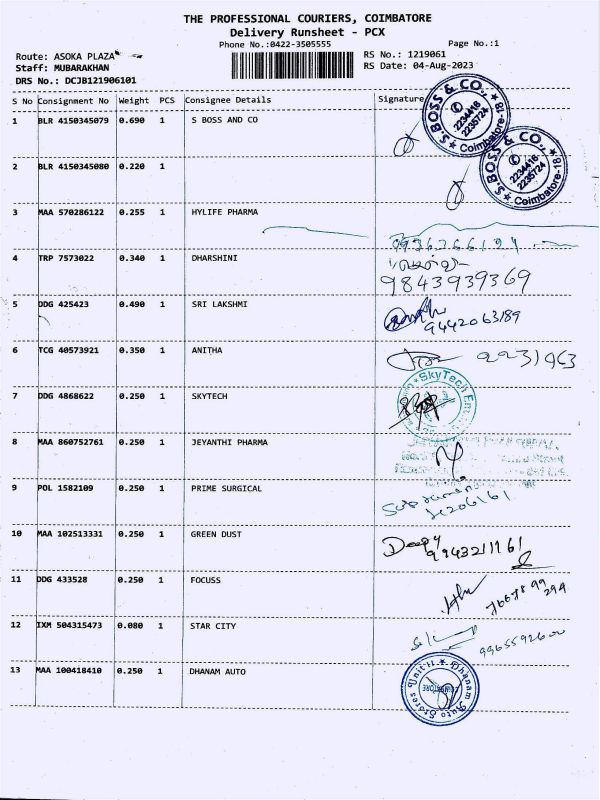 THE PROFESSIONAL COURIERS, COIMBATORE
Delivery Runsheet - PCX
Phone No.:0422-3505555
Page No.:1
Route: ASOKA PLAZA
RS No.: 1219061
Staff: MUBARAKHAN
RS Date: 04-Aug-2023
DRS No.: DCJB121906101
S No Consignment No Weight PCS Consignee Details Signature
S.BOSS & CO., 2234416 2235724 Coimbatore-18
1 BLR 4150345079 0.690 1 S BOSS AND CO
S.BOSS & CO., 2234416 2235724 Coimbatore-18
2 BLR 4150345080 0.220 1
3 MAA 570286122 0.255 1 HYLIFE PHARMA
4 TRP 7573022 0.340 1 DHARSHINI
9843939369
5 DDG 425423 0.490 1 SRI LAKSHMI
9442063189
6 TCG 40573921 0.350 1 ANITHA
2231963
7 DDG 4868622 0.250 1 SKYTECH
SkyTech
8 MAA 860752761 0.250 1 JEYANTHI PHARMA
9 POL 1582109 0.250 1 PRIME SURGICAL
10 MAA 102513331 0.250 1 GREEN DUST
Deepy
9943211161
11 DDG 433528 0.250 1 FOCUSS
12 IXM 504315473 0.080 1 STAR CITY
9965592600
13 MAA 100418410 0.250 1 DHANAM AUTO
Dhanam Auto Stores Unit-II